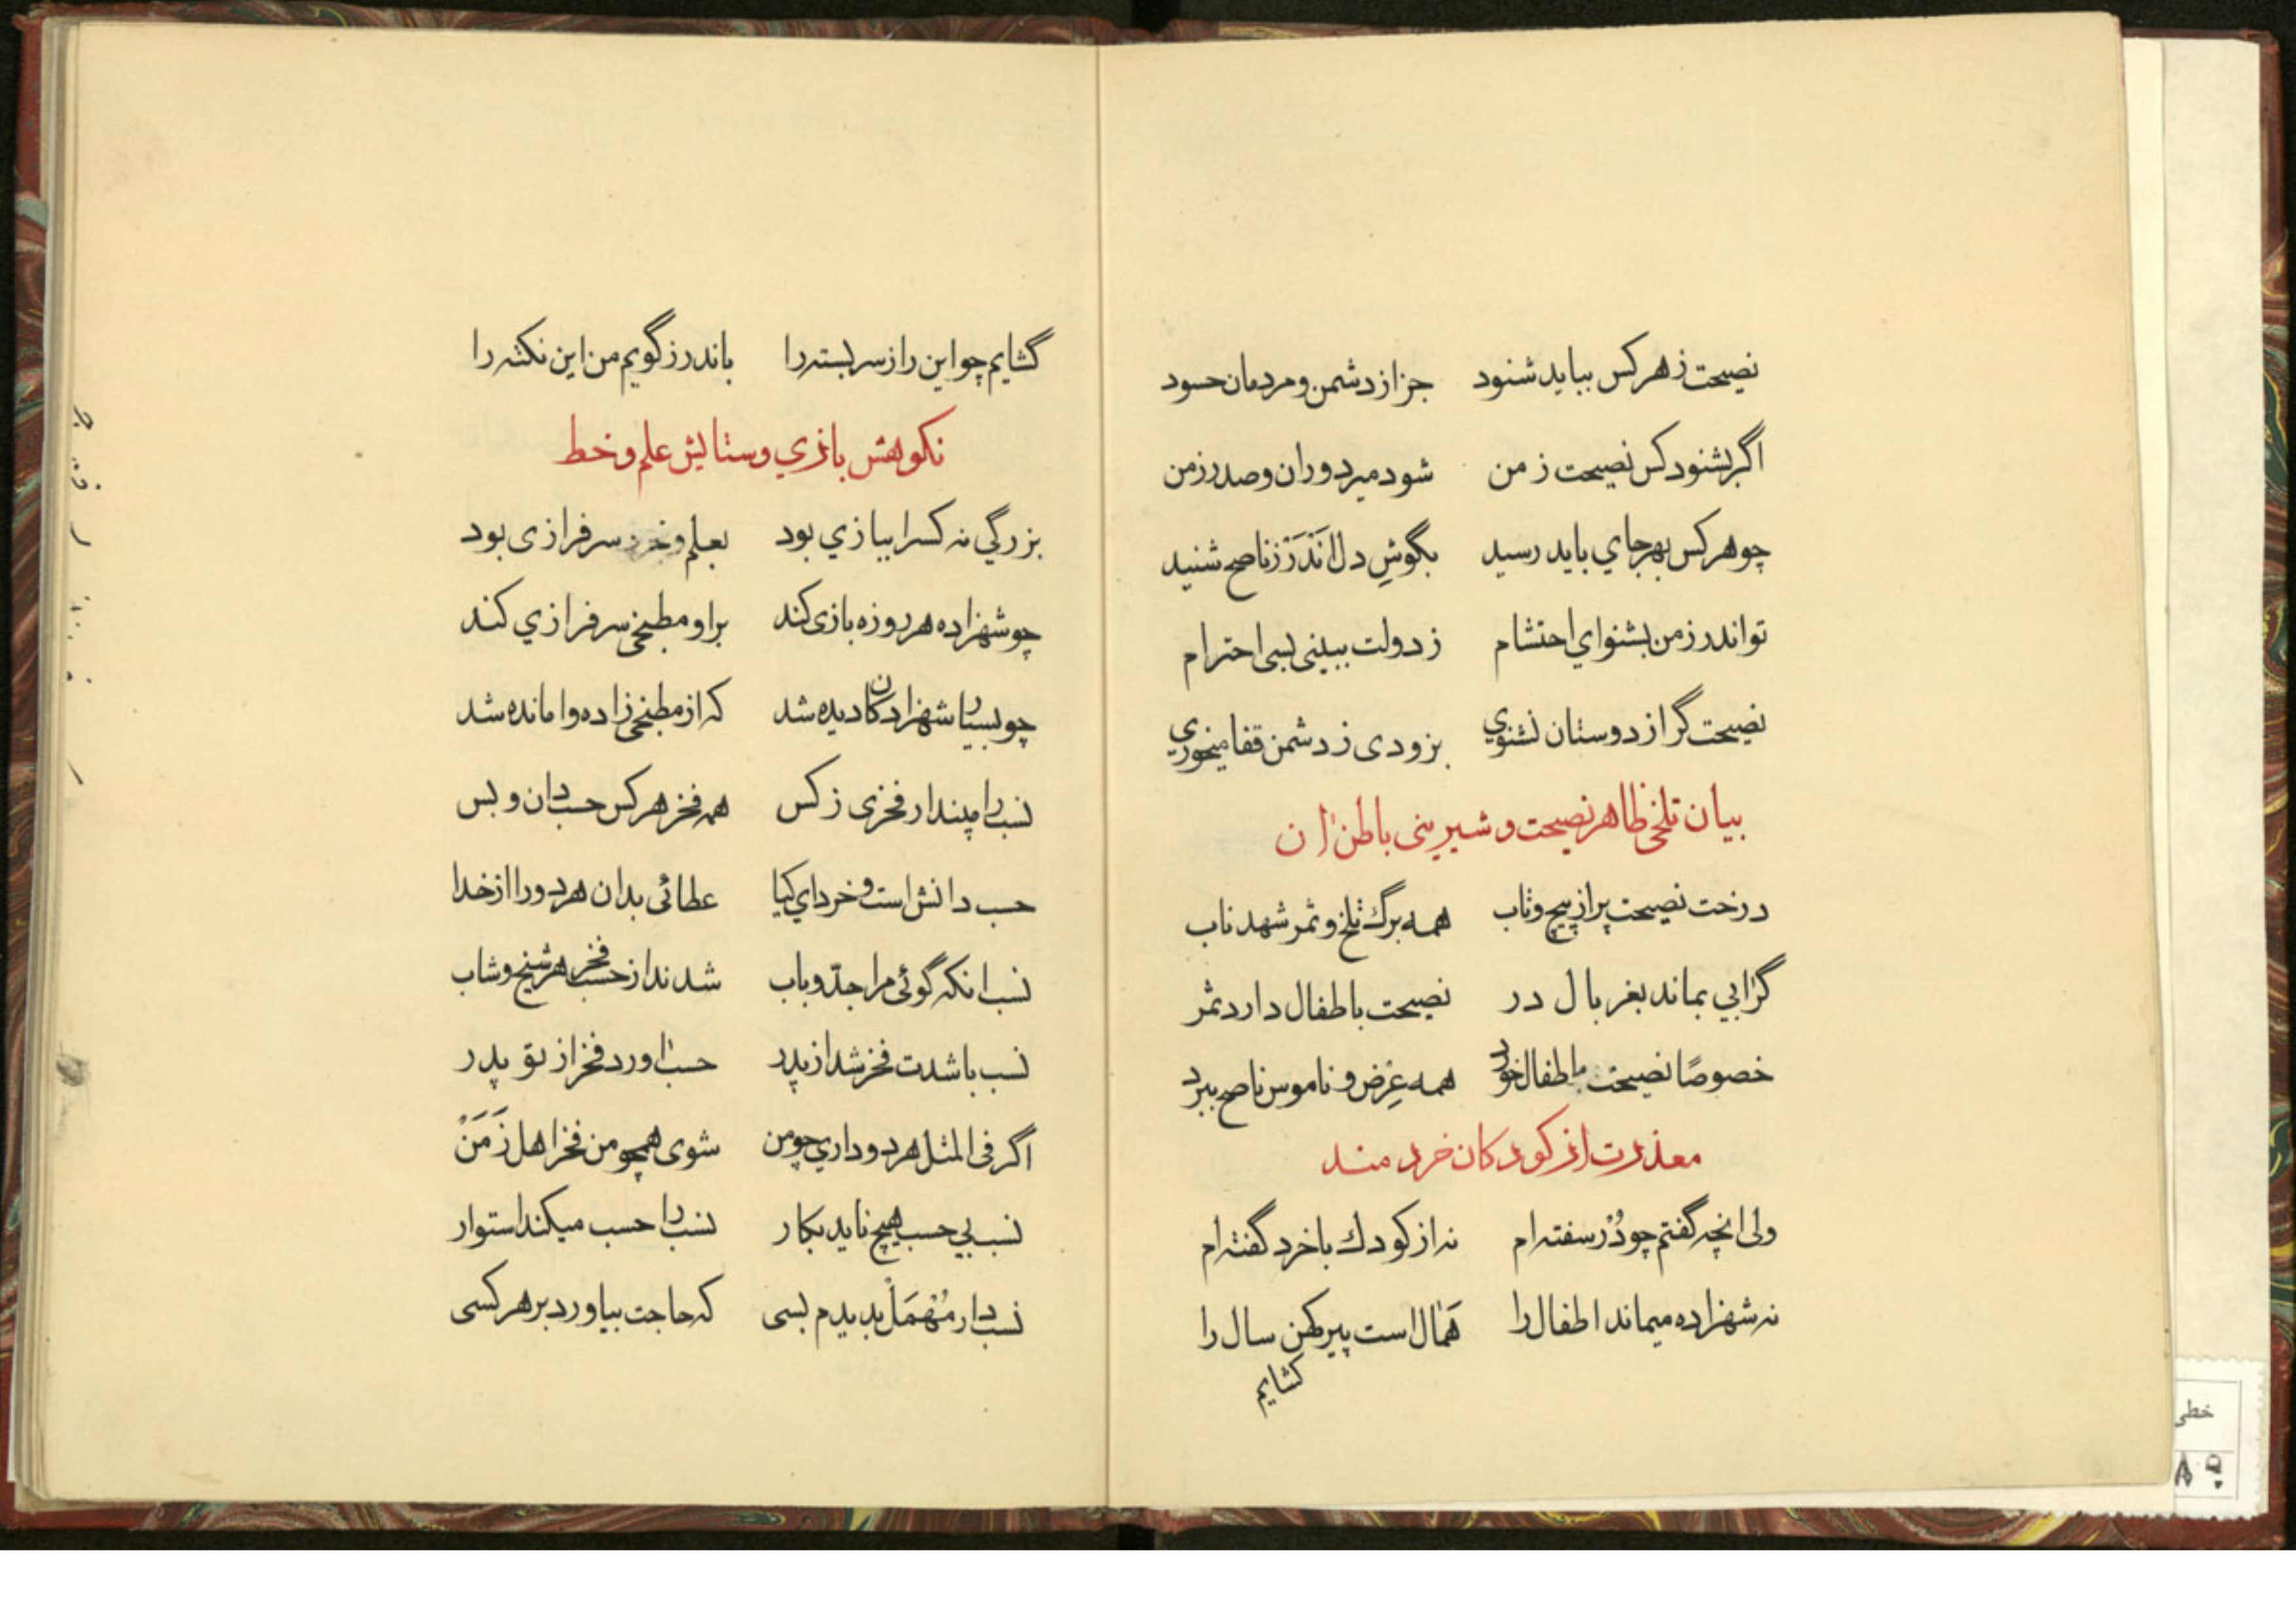 نصیحت ز هر کس بباید شنود جز از دشمن و مردمان حسود
اگر بشنود کس نصیحت ز من شود میر دوران و صدر زمن
چو هر کس بهر جاي باید رسید بگوشِ دل اَندَرْز ناصح شنید
تو اندرز من بشنو اي احتشام ز دولت ببینی بسی احترام
نصیحت گر از دوستان نشنوي بزودی ز دشمن قفا میخوري
بیان تلخی ظاهر نصیحت و شیرینی باطن ان
درخت نصیحت پر از پیچ و تاب همه برگ تلخ و ثمر شهد ناب
گر ابي بماند بغربال در نصیحت باطفال دارد ثمر
خصوصًا نصیحت باطفال خورد همه عِرض و ناموس ناصح ببرد
معذرت از کودکان خردمند
ولی انچه گفتم چو دُرْ سفته‌ام نه از کودك باخرد گفته‌ام
نه شهزاده میماند اطفال را هَمال است پیر کهن سال را
گشایم
گشایم چو این راز سربسته را باندرز گویم من این نکته را
نکوهش بازي و ستایش علم و خط
بزرگي نه کس را ببازي بود بعلم و سرفرازی بود
چو شهزاده هر روزه بازی کند بر او مطبخی سرفرازي کند
چو بسیار شهزادکان دیده شد که از مطبخی زاده وامانده شد
نسب را مپندار فخری ز کس همه فخر هر کس حسب دان و بس
حسب دانش است و خرد اي کیا عطائی بدان هر دو را از خدا
نسب انکه گوئی مرا جدّ و باب شدند از حسب فخر هر شیخ و شاب
نسب باشدت فخر شد از پدر حسب اورد فخر از تو پدر
اگر فی المثل هر دو داري چو من شوی همچو من فخر اهل زَمَنْ
نسب بي حسب هیچ ناید بکار نسب را حسب میکند استوار
نسب دار مُهْمَلْ بدیدم بسی که حاجت بیاورد بر هر کسی
خطی